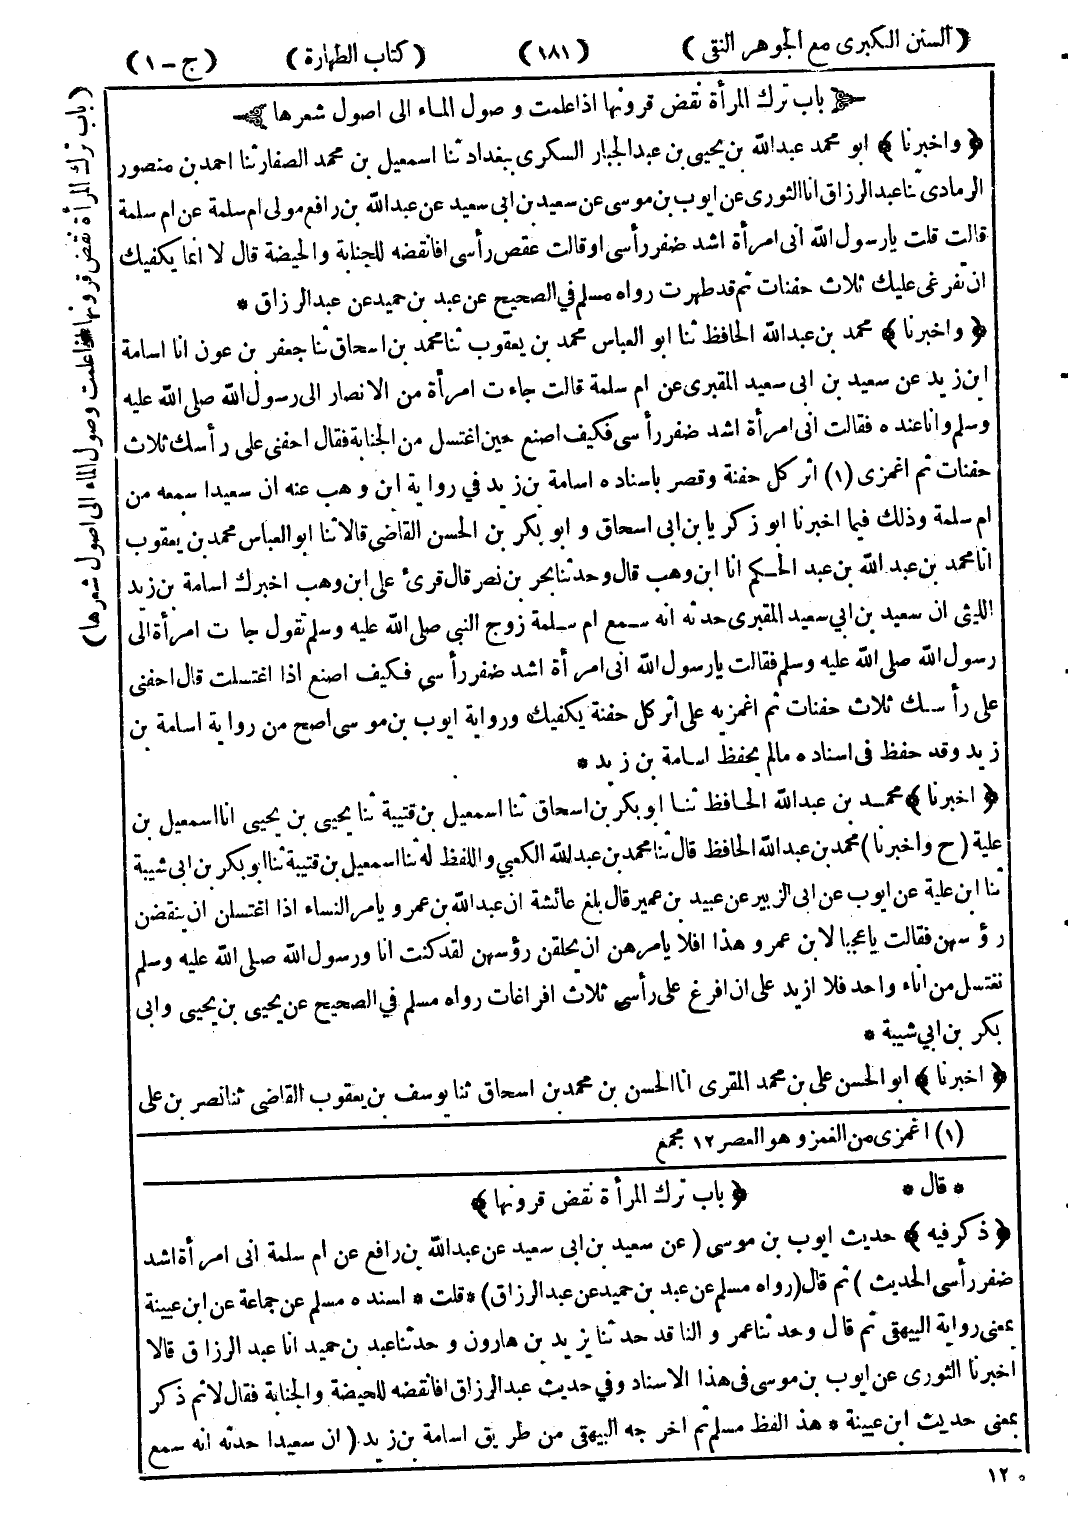 (السنن الكبرى مع الجوهر النقى) (١٨١) (كتاب الطهارة) (ج - ١)
باب ترك المرأة نقض قرونها اذا علمت وصول الماء الى اصول شعرها
﴿ واخبرنا ﴾ ابو محمد عبدالله بن يحيى بن عبدالجبار السكرى ببغداد ثنا اسمعيل بن محمد الصفار ثنا احمد بن منصور
الرمادى ثنا عبدالرزاق انا الثورى عن ايوب بن موسى عن سعيد بن ابى سعيد عن عبدالله بن رافع مولى ام سلمة عن ام سلمة
قالت قلت يارسول الله انى امرأة اشد ضفر رأسى او قالت عقص رأسى افانقضه للجنابة والحيضة قال لا انما يكفيك
ان تفرغى عليك ثلاث حفنات ثم قد طهرت رواه مسلم في الصحيح عن عبد بن حميد عن عبد الرزاق *
﴿ واخبرنا ﴾ محمد بن عبدالله الحافظ ثنا ابو العباس محمد بن يعقوب ثنا محمد بن اسحاق ثنا جعفر بن عون انا اسامة
ابن زيد عن سعيد بن ابى سعيد المقبرى عن ام سلمة قالت جاءت امرأة من الانصار الى رسول الله صلى الله عليه
وسلم وانا عنده فقالت انى امرأة اشد ضفر رأسى فكيف اصنع حين اغتسل من الجنابة فقال احفنى على رأسك ثلاث
حفنات ثم اغمزى (١) اثر كل حفنة وقصر باسناده اسامة بن زيد في رواية ابن وهب عنه ان سعيدا سمعه من
ام سلمة وذلك فيما اخبرنا ابو زكريا بن ابى اسحاق و ابو بكر بن الحسن القاضى قالا ثنا ابو العباس محمد بن يعقوب
انا محمد بن عبد الله بن عبد الحكم انا ابن وهب قال وحدثنا بحر بن نصر قال قرئ على ابن وهب اخبرك اسامة بن زيد
الليثى ان سعيد بن ابي سعيد المقبرى حدثه انه سمع ام سلمة زوج النبي صلى الله عليه وسلم تقول جاءت امرأة الى
رسول الله صلى الله عليه وسلم فقالت يارسول الله انى امرأة اشد ضفر رأسي فكيف اصنع اذا اغتسلت قال احفنى
على رأسك ثلاث حفنات ثم اغمزيه على اثر كل حفنة يكفيك ورواية ايوب بن موسى اصح من رواية اسامة بن
زيد وقد حفظ فى اسناده مالم يحفظ اسامة بن زيد *
﴿ اخبرنا ﴾ محمد بن عبدالله الحافظ ثنا ابو بكر بن اسحاق ثنا اسمعيل بن قتيبة ثنا يحيى بن يحيى انا اسمعيل بن
علية (ح واخبرنا) محمد بن عبدالله الحافظ قال ثنا محمد بن عبدالله الكعبي واللفظ له ثنا اسمعيل بن قتيبة ثنا ابو بكر بن ابى شيبة
ثنا ابن علية عن ايوب عن ابى الزبير عن عبيد بن عمير قال بلغ عائشة ان عبدالله بن عمرو يامر النساء اذا اغتسلن ان ينقضن
رؤسهن فقالت ياعجبا لابن عمرو هذا افلا يامرهن ان يحلقن رؤسهن لقد كنت انا ورسول الله صلى الله عليه وسلم
نغتسل من اناء واحد فلا ازيد على ان افرغ على رأسى ثلاث افراغات رواه مسلم في الصحيح عن يحيى بن يحيى وابى
بكر بن ابي شيبة *
﴿ اخبرنا ﴾ ابو الحسن على بن محمد المقرى انا الحسن بن محمد بن اسحاق ثنا يوسف بن يعقوب القاضى ثنا نصر بن على
(١) اغمزى من الغمز وهو العصر ١٢ مجمع
* قال * ﴿ باب ترك المرأة نقض قرونها ﴾
﴿ ذكر فيه ﴾ حديث ايوب بن موسى (عن سعيد بن ابى سعيد عن عبدالله بن رافع عن ام سلمة انى امرأة اشد
ضفر رأسى الحديث) ثم قال (رواه مسلم عن عبد بن حميد عن عبدالرزاق) * قلت * اسنده مسلم عن جماعة عن ابن عيينة
بمعنى رواية البيهقى ثم قال وحدثنا عمرو الناقد حدثنا يزيد بن هارون وحدثنا عبد بن حميد انا عبد الرزاق قالا
اخبرنا الثورى عن ايوب بن موسى فى هذا الاسناد وفي حديث عبدالرزاق افانقضه للحيضة والجنابة فقال لا ثم ذكر
بمعنى حديث ابن عيينة * هذ الفظ مسلم ثم اخرجه البيهقى من طريق اسامة بن زيد (ان سعيدا حدثه انه سمع
١٢٠
(باب ترك المرأة نقض قرونها اذا علمت وصول الماء الى اصول شعرها)